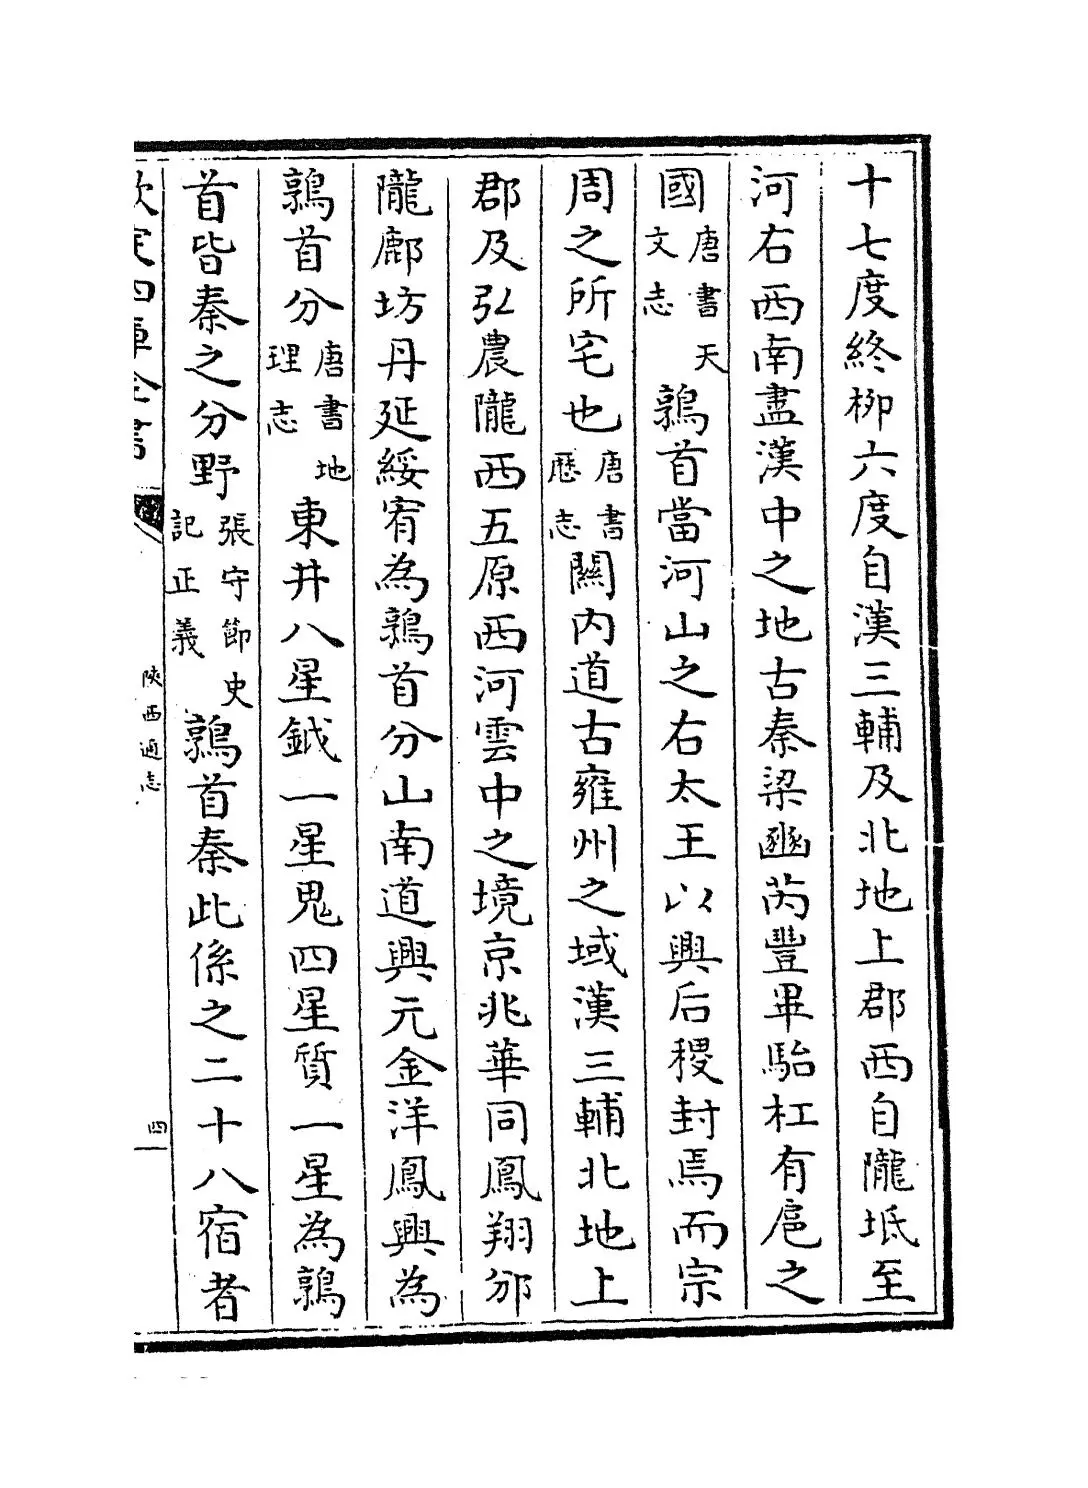 十七度終栁六度自漢三輔及北地上郡西自隴坻至
河右西南盡漢中之地古秦梁豳芮豐畢駘杠有扈之
國唐書天文志鶉首當河山之右太王以興后稷封焉而宗
周之所宅也唐書歷志關内道古雍州之域漢三輔北地上
郡及弘農隴西五原西河雲中之境京兆華同鳳翔邠
隴鄜坊丹延綏宥為鶉首分山南道興元金洋鳳興為
鶉首分唐書地理志東井八星鉞一星鬼四星質一星為鶉
首皆秦之分野張守節史記正義鶉首秦此係之二十八宿者
欽定四庫全書
陝西通志
四